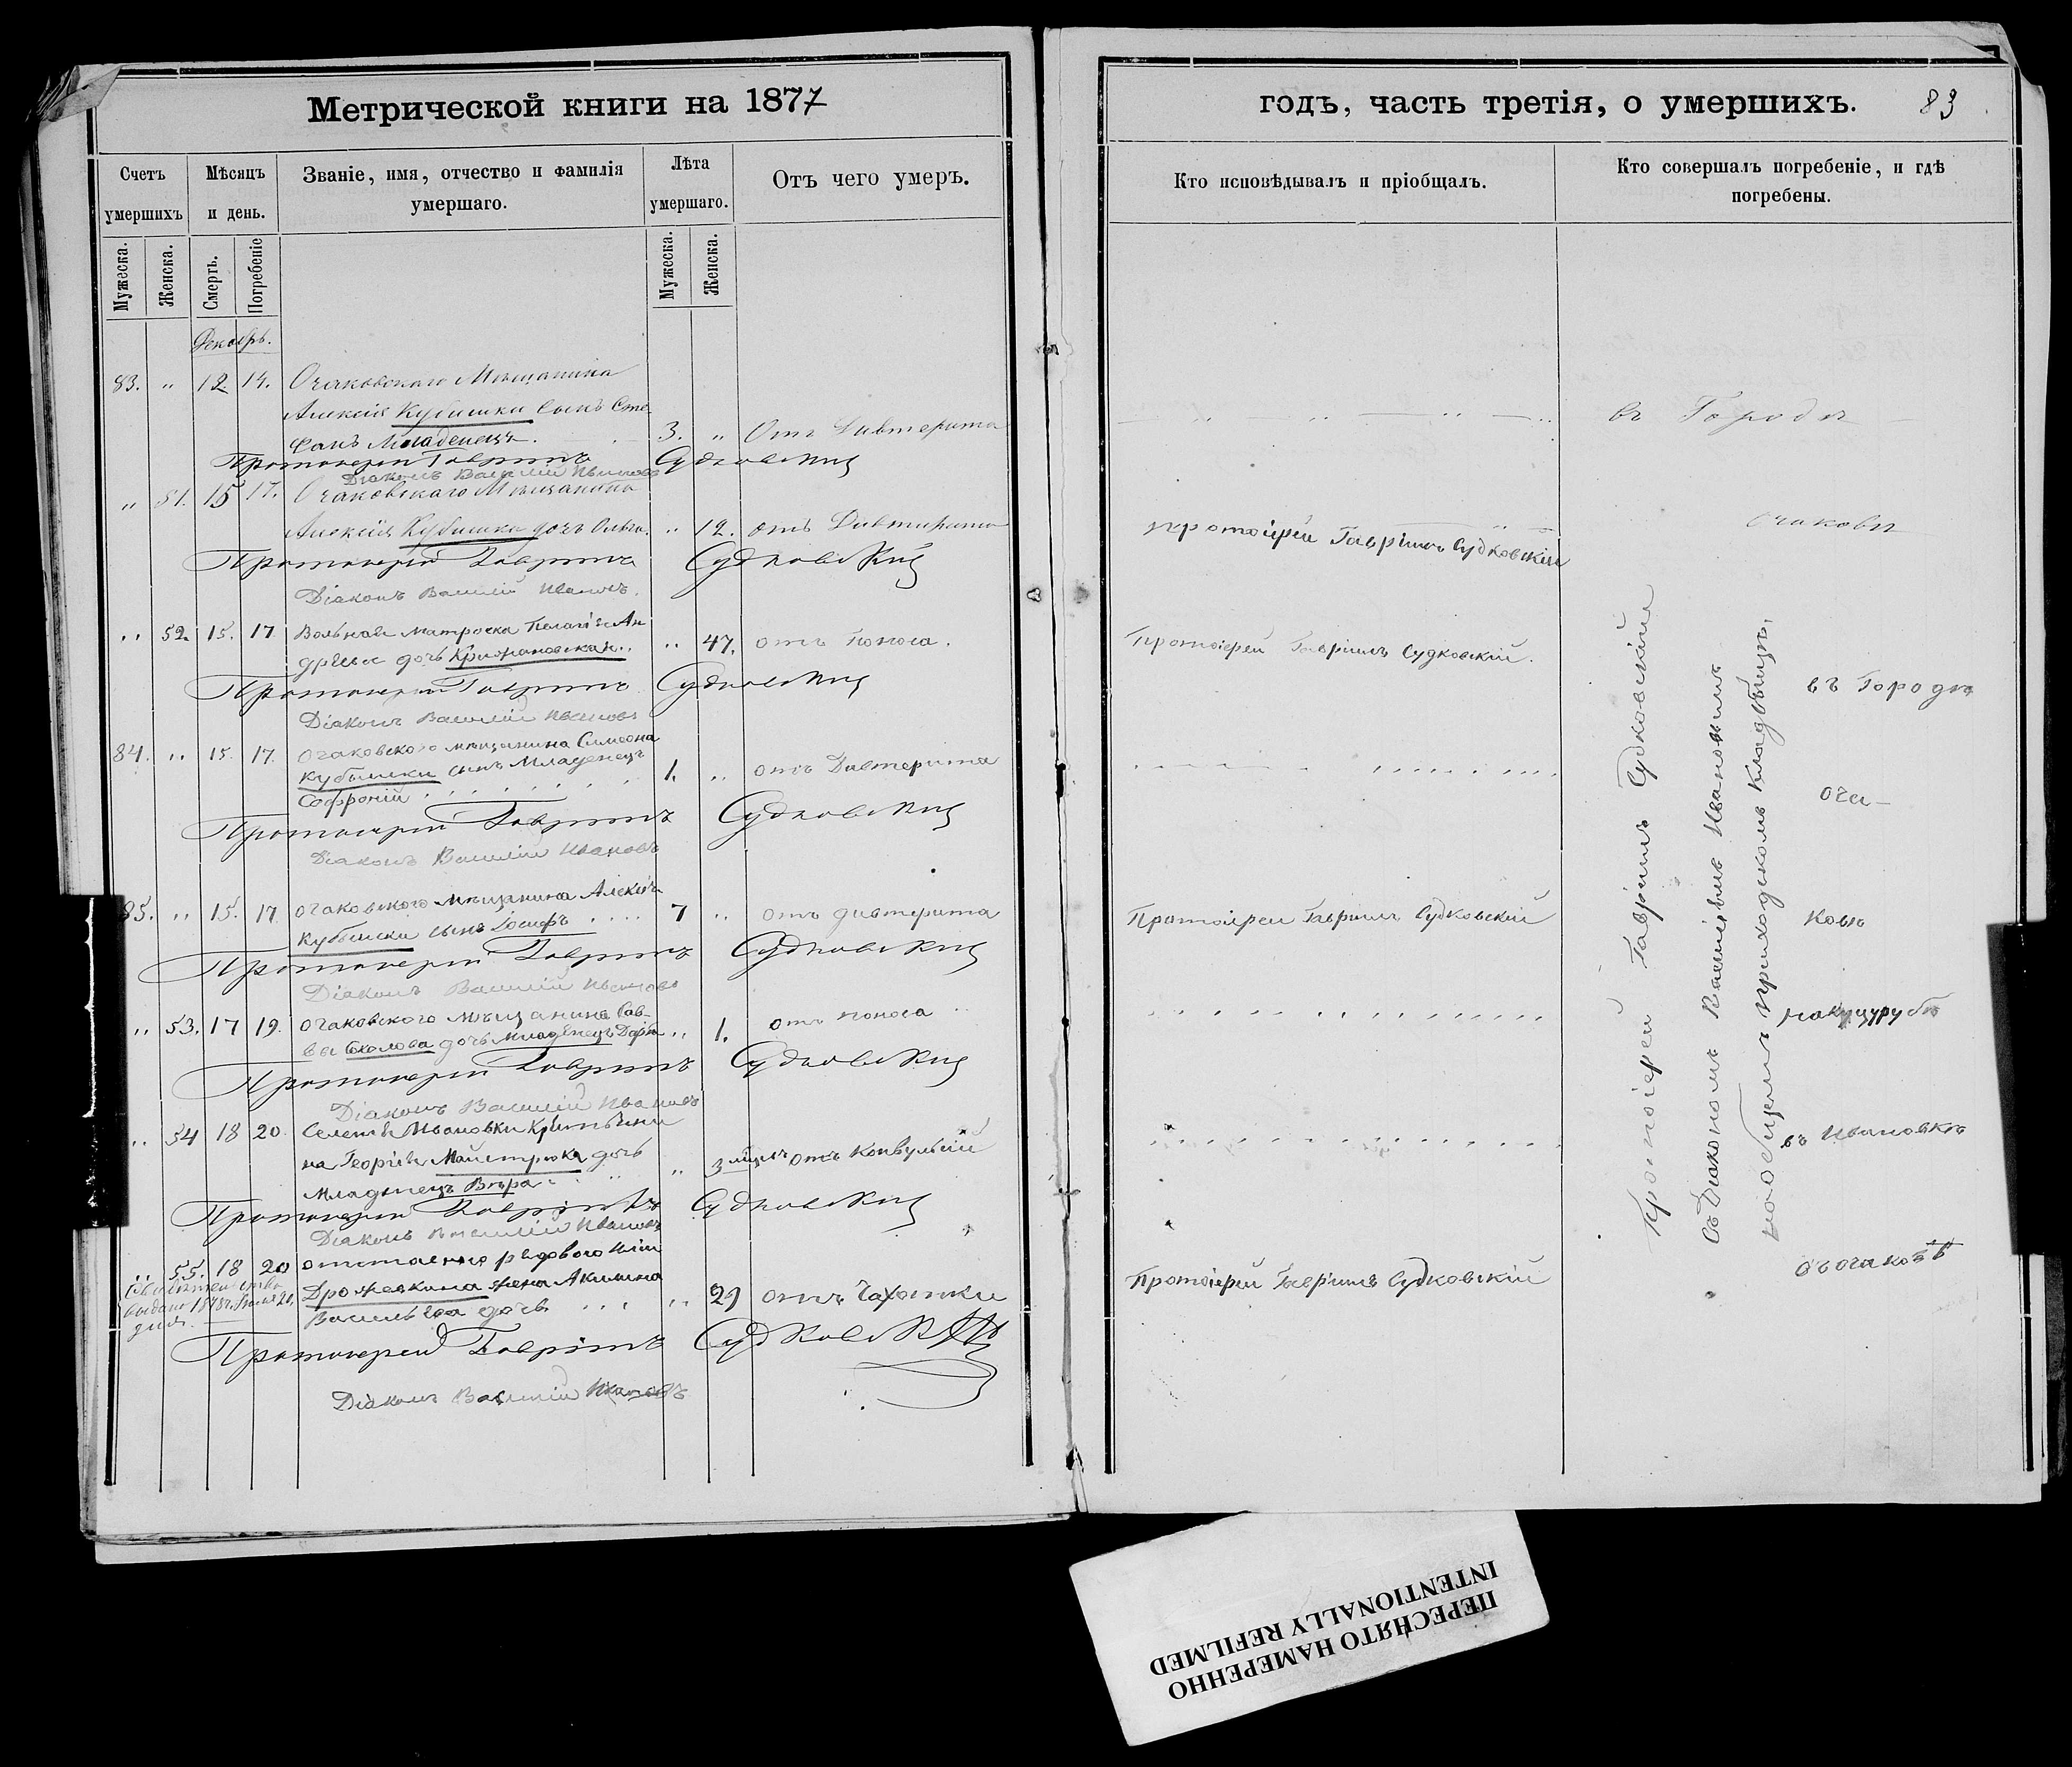 Метрической книги на 1877
Счетъ умершихъ
Мѣсяцъ и день.
Званіе, имя, отчество и фамилія умершаго.
Лѣта умершаго.
Отъ чего умеръ.
Мужеска.
Женска.
Смерть.
Погребеніе
Мужеска.
Женска.
Декабрь.
83. " 12 14. Очаковскаго Мѣщанина
Алексія Кубышки сынъ Сте-
фанъ Младенецъ. 3. " Отъ Дивтерита
Протоіерей Гавріилъ Судковскій
Діаконъ Василій Ивановъ
" 51. 15 17. Очаковскаго Мѣщанина
Алексія Кубышки дочь Ольга. " 12. отъ Дивтирита
Протоіерей Гавріилъ Судковскій
Діаконъ Василій Ивановъ.
" 52. 15. 17 Вольнаго матроска Пелагія Ан
дреева дочь Крижановская. " 47. отъ поноса.
Протоіерей Гавріилъ Судковскій
Діаконъ Василій Ивановъ
84. " 15. 17. Очаковского мѣщанина Симеона
Кубышки сынъ Младенецъ 1. " отъ Дивтерита
Софроній
Протоіерей Гавріилъ Судковскій
Діаконъ Василій Ивановъ
85. " 15. 17 очаковского мѣщанина Алексія
Кубышки сынъ Іосифъ 7 " отъ дивтерита
Протоіерей Гавріилъ Судковскій
Діаконъ Василій Ивановъ
" 53. 17 19. очаковского мѣщанина Сав-
вы Соколова дочь Младенецъ Дарія " 1. отъ поноса
Протоіерей Гавріилъ Судковскій
Діаконъ Василій Ивановъ
" 54 18 20. Селенія Ивановки
на Георгія Майстрюка дочь " 3 отъ конвульсій
Младенецъ Вѣра
Протоіерей Гавріилъ Судковскій
Діаконъ Василій Ивановъ
" 55. 18 20 отставного рядового
Дрожевкина жена Акилина " 29 отъ Чахотки
Васильева дочь
Свидѣтельство
выдано 1878 г.
дня.
Протоіерей Гавріилъ Судковскій
Діаконъ Василій Ивановъ
годъ, часть третія, о умершихъ. 83
Кто исповѣдывалъ и пріобщалъ.
Кто совершалъ погребеніе, и гдѣ погребены.
въ Городѣ
протоіерей Гавріилъ Судковскій
Очаковѣ
Протоіерей Гавріилъ Судковскій.
въ Городѣ
Оча-
Протоіерей Гавріилъ Судковскій
ковѣ
въ Ивановкѣ
Протоіерей Гавріилъ Судковскій
въ очаковѣ
Протоіерей Гавріилъ Судковскій
съ Діакономъ Василіемъ Ивановымъ
на общемъ приходскомъ кладбищѣ,
ПЕРЕСНЯТО НАМЕРЕННО
INTENTIONALLY REFILMED